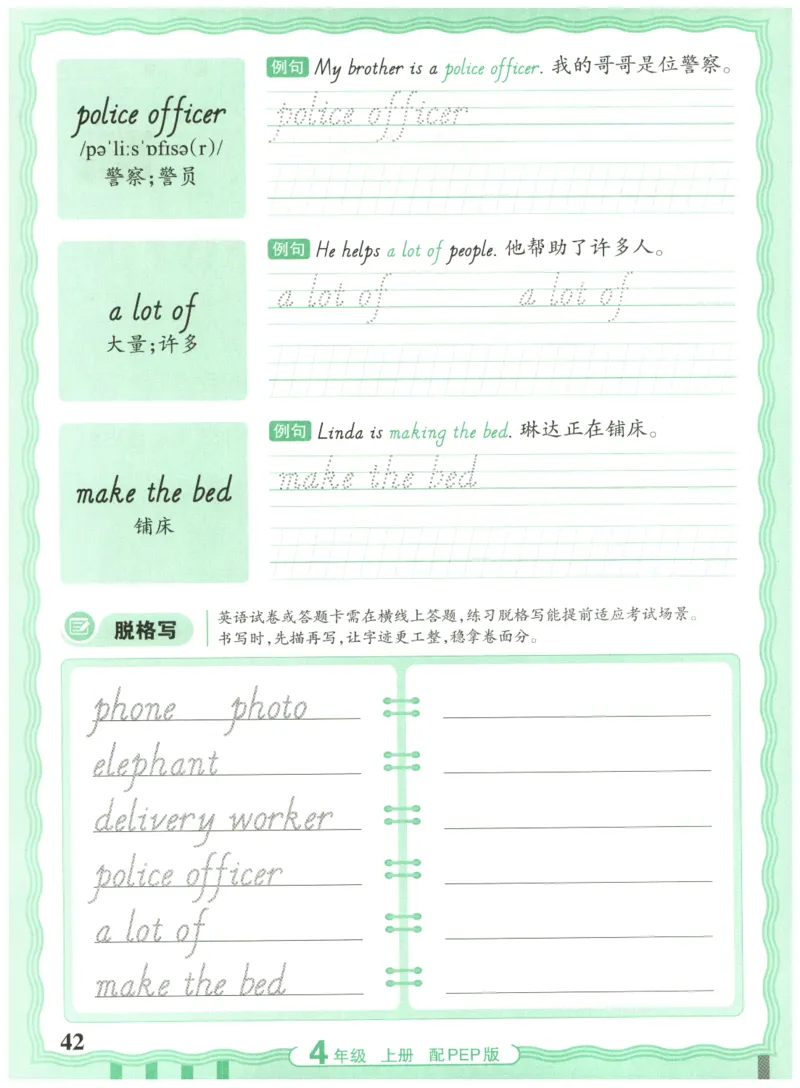 例句 My brother is a police officer. 我的哥哥是位警察。
police officer
/pəˈliːsˈɒfɪsə(r)/
警察;警员
police officer
例句 He helps a lot of people. 他帮助了许多人。
a lot of
大量;许多
a lot of a lot of
例句 Linda is making the bed. 琳达正在铺床。
make the bed
铺床
make the bed
脱格写
英语试卷或答题卡需在横线上答题,练习脱格写能提前适应考试场景。
书写时,先描再写,让字迹更工整,稳拿卷面分。
phone photo
elephant
delivery worker
police officer
a lot of
make the bed
42
4年级 上册 配PEP版